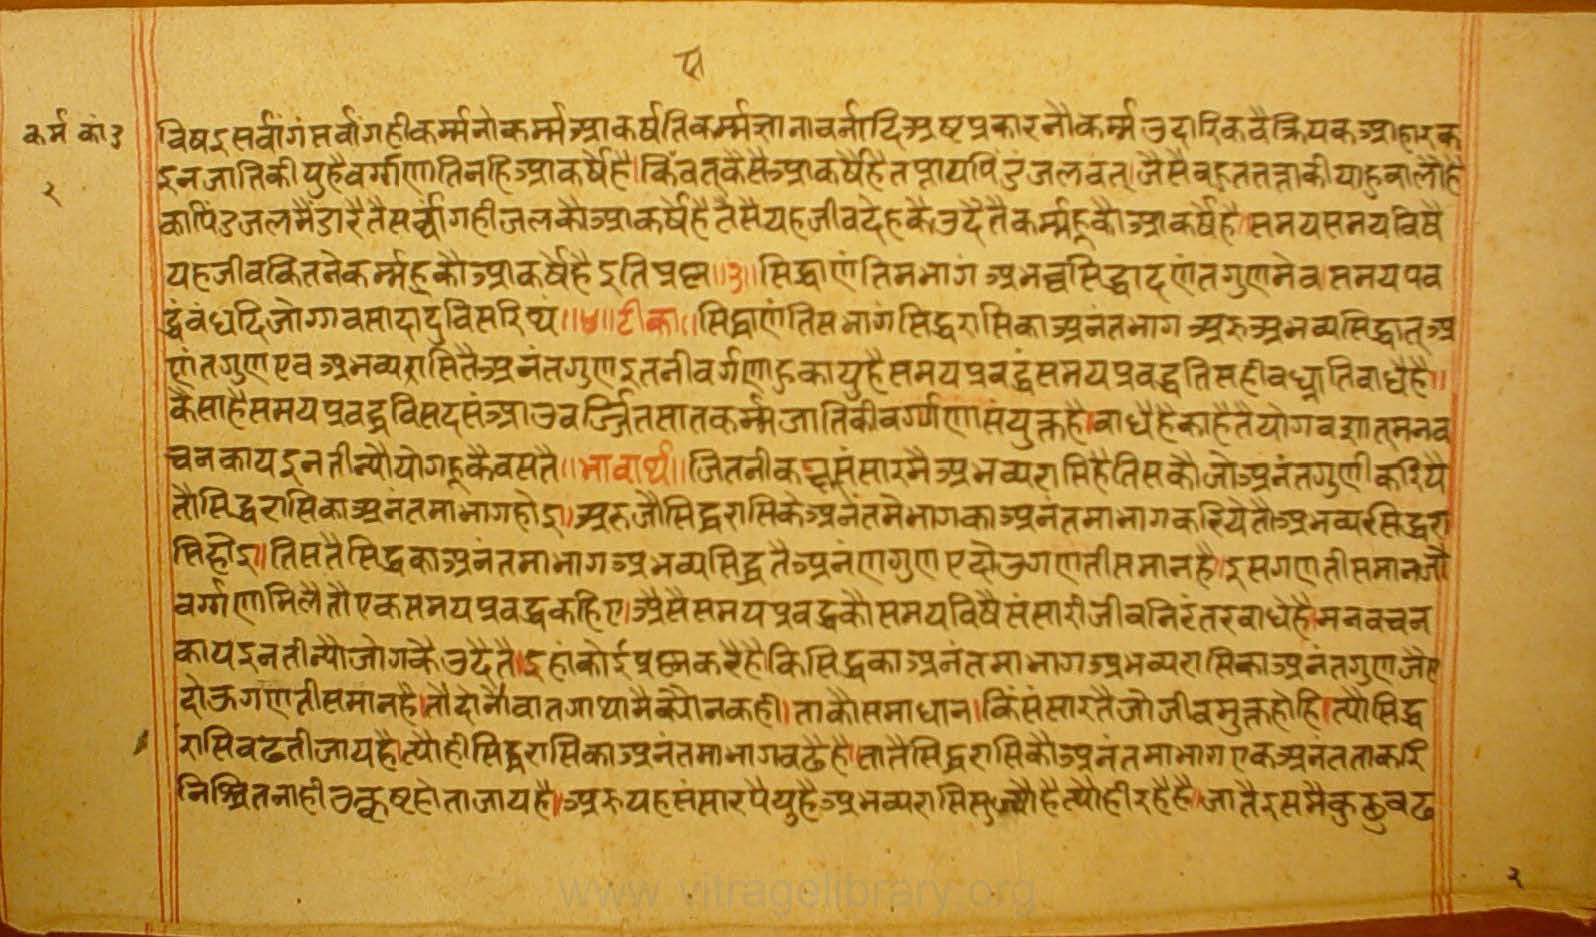 कर्म कां ३
२
विषइ सर्वांगं सर्वांगही कर्म्म नो कर्म्म आकर्षति कर्म्म ज्ञानावर्नादि अष्ट प्रकार नौकर्म्म उदारिक वैक्रियक आहारक
इन जाति की युहै वर्ग्गणा तिनहि आकर्षै है। किंवत् कैसै आकर्षै है तप्तायपिंडं जलवंत्। जैसै बहुत तत्ता कीया हुवा लोहे
का पिंड जलमै डारै तैसर्व्वांगही जलकौ आकर्षै है तैसै यह जीव देह कै उदै तै कर्म्महकौ आकर्षै है। समय समय विषै
यह जीव कितने कर्म्महकौ आकर्षै है इति प्रष्न॥३॥ सिद्धाणंतिमभागं अभव्वसिद्धादणंतगुणमेव। समयपव
द्धं बंधदि जोग्गवसादादु विसरित्थं॥४॥ टीका॥ सिद्धाणंतिसभागं सिद्धरासि का अनंत भाग अरु अभव्यसिद्धात् अ
णंतगुण एव अभव्यरासि तै अनंतगुण इतनी वर्गणाहु का युहै समयप्रबद्धं समयप्रबद्ध तिसही बध्नाति बाधै है॥
कैसा है समयप्रबद्ध विसदसं आउ वर्ज्जित सात कर्म्म जाति की वर्ग्गणा संयुक्त है। बाधै है काहै तै योगवशात् मन व
चन काय इन तीन्यौ योगहू कै वस तै॥ भावार्थ॥ जितनी कछू संसार मै अभव्यरासि है तिसकौ जो अनंतगुणी करियै
तौ सिद्धरासि का अनंतमा भाग होइ। अरु जौ सिद्धरासि के अनंतमे भाग का अनंतमा भाग करियै तौ अभव्यरसिद्धरा
सि होइ॥ तिस तै सिद्ध का अनंतमा भाग अभव्यसिद्ध तै अनंणगुण ए दोउ गणती समान है। इस गणती समान जौ
वर्ग्गणा मिलै तौ एक समयप्रबद्ध कहिए। औसै समयप्रबद्ध कौ समय विषै संसारी जीव निरंतर बाधै है। मन वचन
काय इन तीन्यौ जोग कै उदै तै। इहां कोई प्रष्न करै है कि सिद्ध का अनंतमा भाग अभव्यरासि का अनंतगुण जै ए
दोऊ गणती समान है। तौ दोनौ बात गाथा मै क्यौ न कही। ताकौ समाधान। कि संसार तै जो जीव मुक्त होहि। त्यौ सिद्ध
रासि बढती जाय है। त्यौही सिद्धरासि का अनंतमा भाग बढै है। तातै सिद्धरासि कौ अनंतमा भाग एक अनतता करि
निश्चित नाही उत्कृष्ट होता जाय है। अरु यह संसार पै युहै अभव्यरासि सु ज्यौ है त्यौही रहै है। जातै इसमै कुछु बढ
२
www.vitragelibrary.org